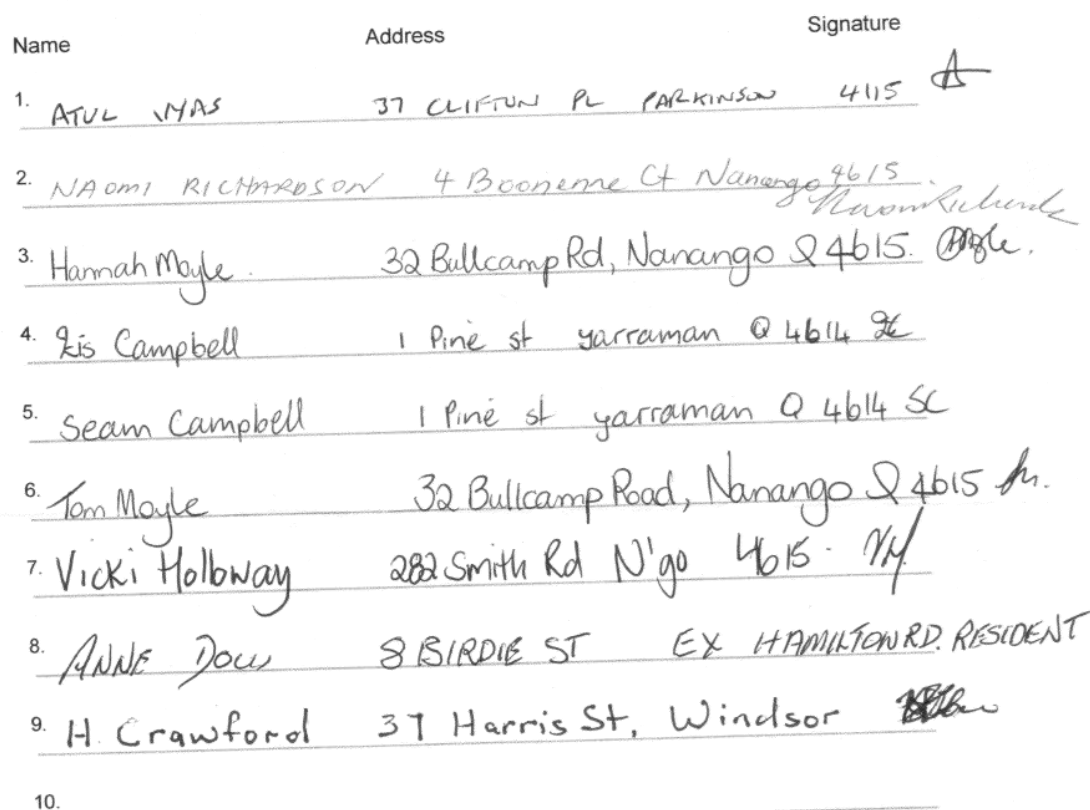 Name Address Signature
1. ATUL VYAS 37 CLIFTON PL PARKINSON 4115
2. NAOMI RICHARDSON 4 Boonenne Ct Nanango 4615.
3. Hannah Moyle. 32 Bullcamp Rd, Nanango Q 4615.
4. Campbell 1 Pine st yarraman Q 4614
5. Seam Campbell 1 Pine st yarraman Q 4614 SC
6. Tom Moyle 32 Bullcamp Road, Nanango Q 4615
7. Vicki Holloway 282 Smith Rd N'go 4615. VH
8. ANNE 8 BIRDIE ST EX HAMILTON RD. RESIDENT
9. H. Crawford 37 Harris St, Windsor
10.